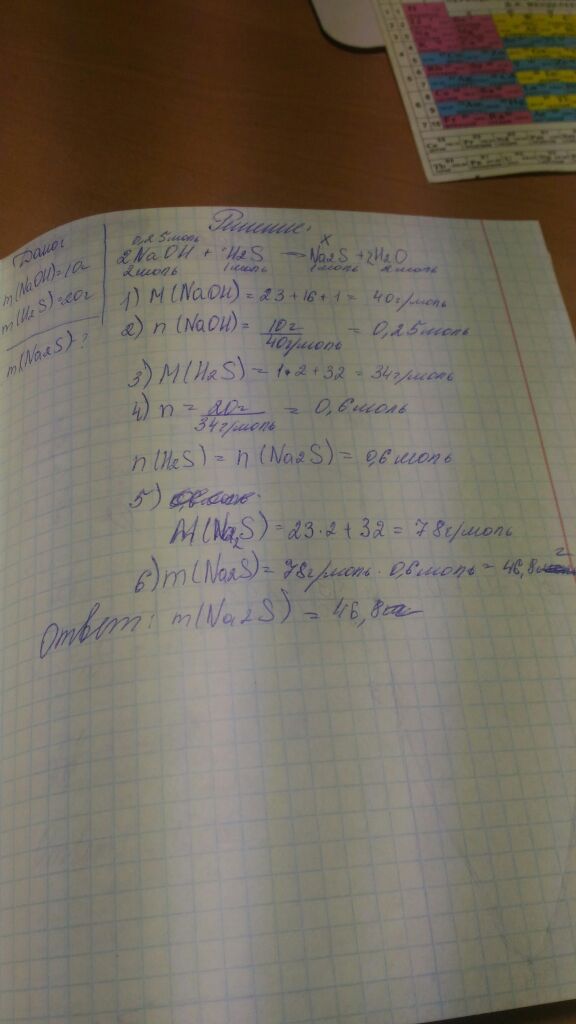 Дано:
m(NaOH)=10г
m(H2S)=20г
m(Na2S)-?
Решение:
0,25моль X
2NaOH + H2S → Na2S + 2H2O
2моль 1моль 1моль 2моль
1) M(NaOH) = 23+16+1 = 40г/моль
2) n(NaOH) = 10г / 40г/моль = 0,25моль
3) M(H2S) = 1·2+32 = 34г/моль
4) n = 20г / 34г/моль = 0,6моль
n(H2S) = n(Na2S) = 0,6моль
5)
M(Na2S) = 23·2+32 = 78г/моль
6) m(Na2S) = 78г/моль · 0,6моль = 46,8г
Ответ: m(Na2S) = 46,8г